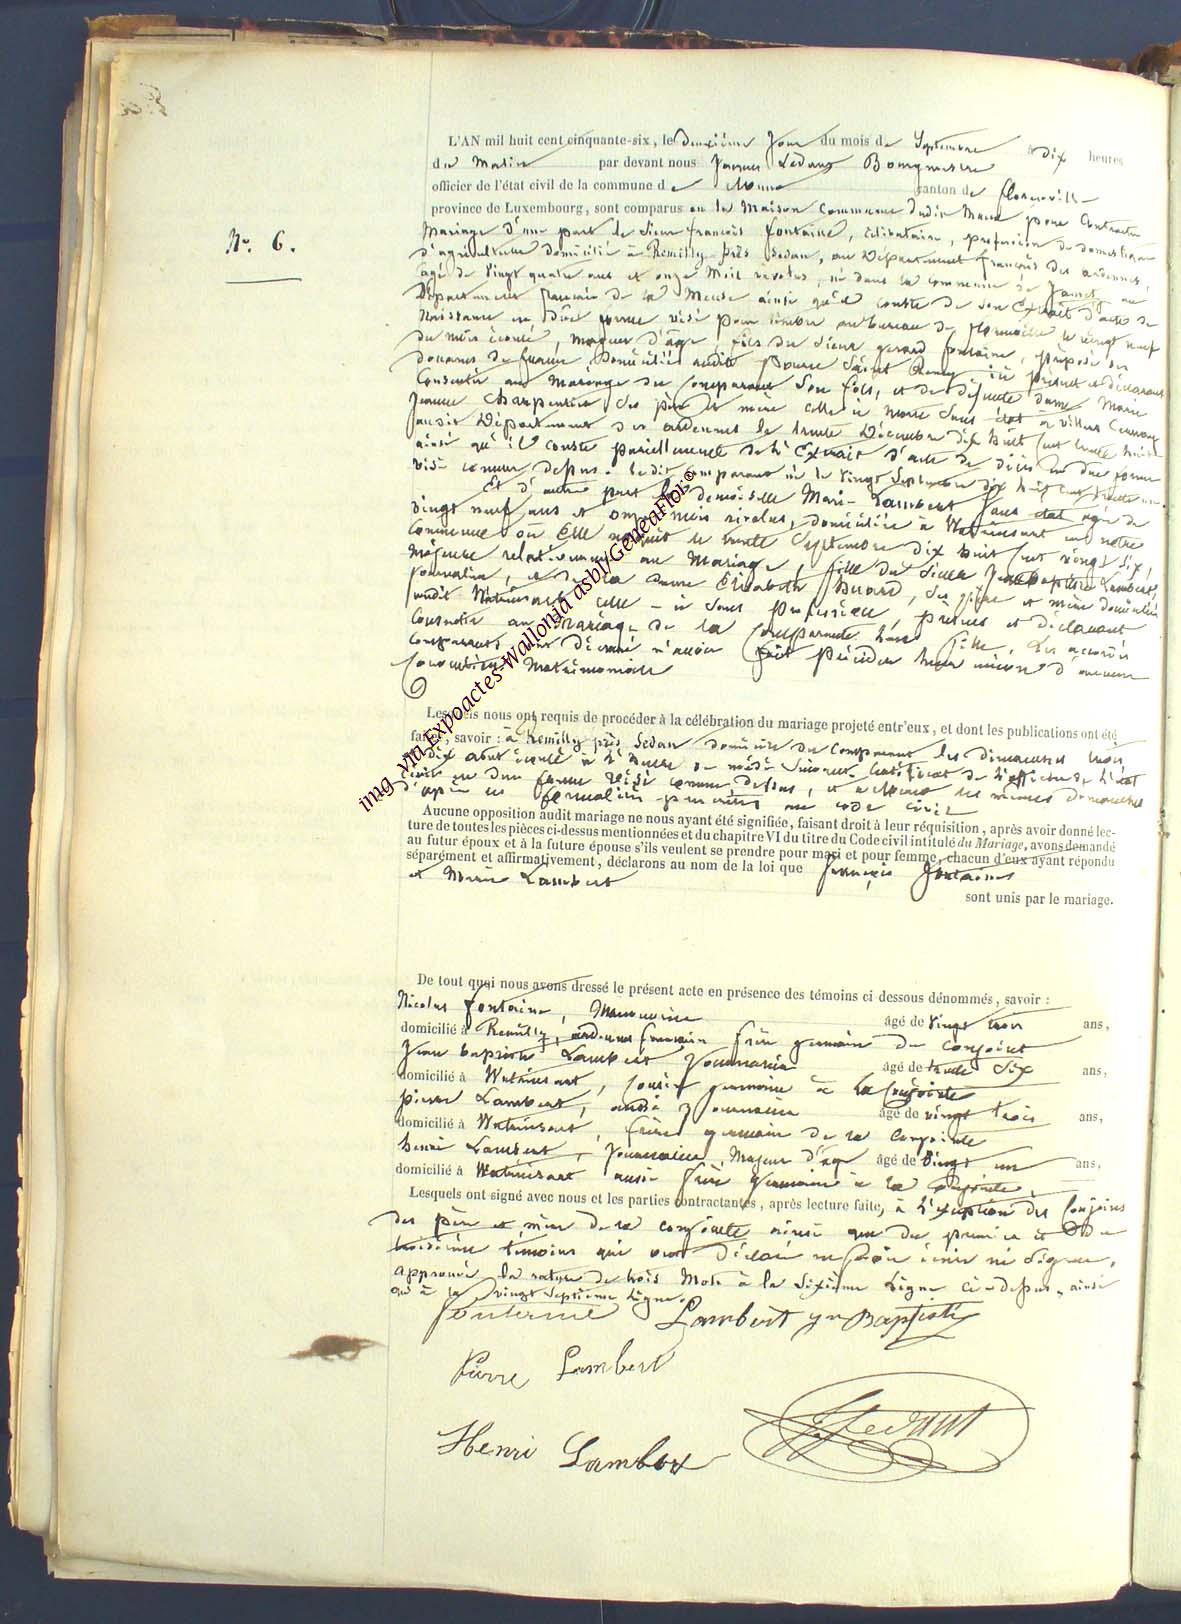 N.° 6.
L'AN mil huit cent cinquante-six, le deuxième jour du mois de Septembre à dix heures
du Matin par devant nous Ledant Bourgmestre
officier de l'état civil de la commune de Muno canton de Florenville
province de Luxembourg, sont comparus en la Maison Commune dudit Muno pour Contracter
Mariage d'une part le sieur françois fontaine, célibataire, profession de domestique
d'agriculture domicilié à Remilly près Sedan, au Département français des ardennes,
âgé de vingt quatre ans et onze Mois révolus, né dans la commune de Jamets, au
Département français de la Meuse ainsi qu'il conste de son Extrait d'acte de
Naissance en due forme visé pour timbre au bureau de florenville le vingt neuf
du mois écoulé, majeur d'âge, fils du sieur gerard fontaine, préposé des
douanes de france domicilié audit Pouru Saint Remy ici présent et déclarant
Consentir au Mariage du Comparant Son fils, et de défunte dame Marie
Jeanne Charpentier ses père et mère celle-ci morte sans état à villers Cernay
susdit Département des ardennes le trente Décembre dix huit cent trente huit
ainsi qu'il conste pareillement de l'Extrait d'acte de décès en due forme
visé comme dessus. ledit comparant né le vingt Septembre dix huit cent trente un
Et d'autre part la demoiselle Marie Lambert sans état âgée de
vingt neuf ans et onze mois révolus, domiciliée à Watrinsart en notre
commune où Elle naquit le trente Septembre dix huit cent vingt six,
majeure relativement au Mariage, fille du Sieur Jean baptiste Lambert,
journalier, et de la dame Elisabeth, ses père et mère domiciliés
audit Watrinsart celle-ci sans profession, présens et déclarant
Consentir au Mariage de la Comparante leur fille. Les
comparants ont déclaré n'avoir fait précéder leur union d'aucune
Convention Matrimoniale
Lesquels nous ont requis de procéder à la célébration du mariage projeté entr'eux, et dont les publications ont été
faites, savoir : à Remilly près Sedan domicile du Comparant les dimanches trois
et dix août écoulé à l'heure de midi Suivant Certificat de l'officier de l'état
civil en due forme visé comme dessus, et à Muno les mêmes dimanches
d'après les formalités prescrites au code civil
Aucune opposition audit mariage ne nous ayant été signifiée, faisant droit à leur réquisition, après avoir donné lec-
ture de toutes les pièces ci-dessus mentionnées et du chapitre VI du titre du Code civil intitulé du Mariage, avons demandé
au futur époux et à la future épouse s'ils veulent se prendre pour mari et pour femme, chacun d'eux ayant répondu
séparément et affirmativement, déclarons au nom de la loi que françois fontaine
et Marie Lambert
sont unis par le mariage.
De tout quoi nous avons dressé le présent acte en présence des témoins ci dessous dénommés, savoir :
Nicolas fontaine, Manouvrier âgé de vingt trois ans,
domicilié à Remilly, ardennes françaises frère germain du conjoint
Jean baptiste Lambert Journalier âgé de trente Six ans,
domicilié à Watrinsart, cousin germain à la Conjointe
pierre Lambert, aussi journalier âgé de vingt trois ans,
domicilié à Watrinsart, frère germain de la conjointe
henri Lambert, Journalier, Majeur d'âge âgé de Vingt un ans,
domicilié à Watrinsart aussi frère germain à la conjointe,
Lesquels ont signé avec nous et les parties contractantes, après lecture faite, à l'exception des Conjoins
des père et mère de la conjointe ainsi que du premier et du
troisième témoins qui ont déclaré ne savoir écrire ni signer,
approuvé la rature de trois Mots à la Sixième Ligne ci-dessus, ainsi
qu'à la vingt septième Ligne.
fontaine Lambert jn Baptiste
Pierre Lambert
Henri Lambert Ledant
img via Expoactes-Wallonia asbl/GeneaFlor©